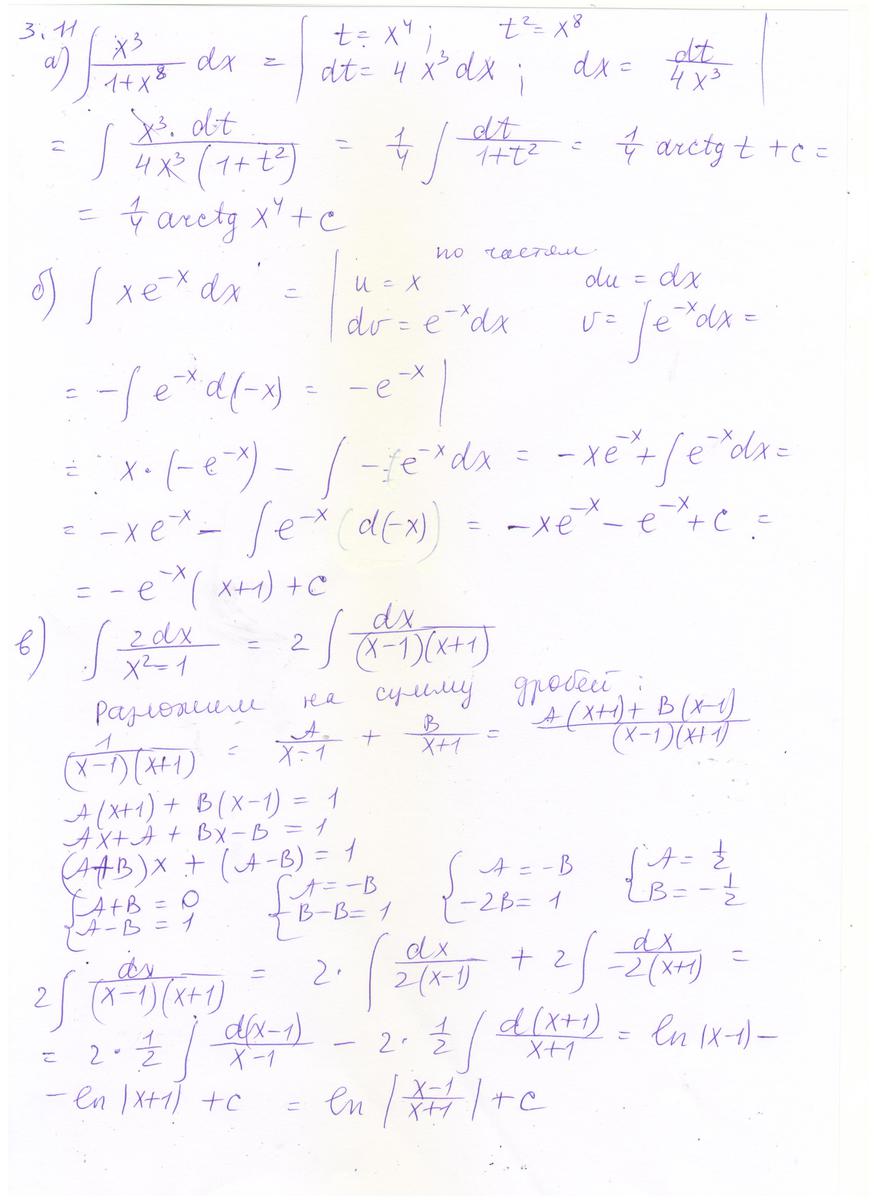 3.11
а) ∫ x³/(1+x⁸) dx = | t = x⁴ ; t² = x⁸
dt = 4x³dx ; dx = dt/(4x³) |
= ∫ x³·dt/(4x³(1+t²)) = 1/4 ∫ dt/(1+t²) = 1/4 arctg t + c =
= 1/4 arctg x⁴ + c
по частям
б) ∫ xe⁻ˣ dx = | u = x du = dx
dv = e⁻ˣdx v = ∫ e⁻ˣdx =
= -∫ e⁻ˣ d(-x) = -e⁻ˣ |
= x·(-e⁻ˣ) - ∫ -e⁻ˣdx = -xe⁻ˣ + ∫ e⁻ˣdx =
= -xe⁻ˣ - ∫ e⁻ˣ (d(-x)) = -xe⁻ˣ - e⁻ˣ + c =
= -e⁻ˣ(x+1) + c
в) ∫ 2dx/(x²-1) = 2 ∫ dx/((x-1)(x+1))
Разложим на сумму дробей:
1/((x-1)(x+1)) = A/(x-1) + B/(x+1) = (A(x+1) + B(x-1))/((x-1)(x+1))
A(x+1) + B(x-1) = 1
Ax+A + Bx-B = 1
(A+B)x + (A-B) = 1
{ A+B = 0 { A = -B { A = -B { A = 1/2
{ A-B = 1 { -B-B = 1 { -2B = 1 { B = -1/2
2∫ dx/((x-1)(x+1)) = 2·∫ dx/(2(x-1)) + 2∫ dx/(-2(x+1)) =
= 2·1/2 ∫ d(x-1)/(x-1) - 2·1/2 ∫ d(x+1)/(x+1) = ln|x-1| -
- ln|x+1| + c = ln |(x-1)/(x+1)| + c